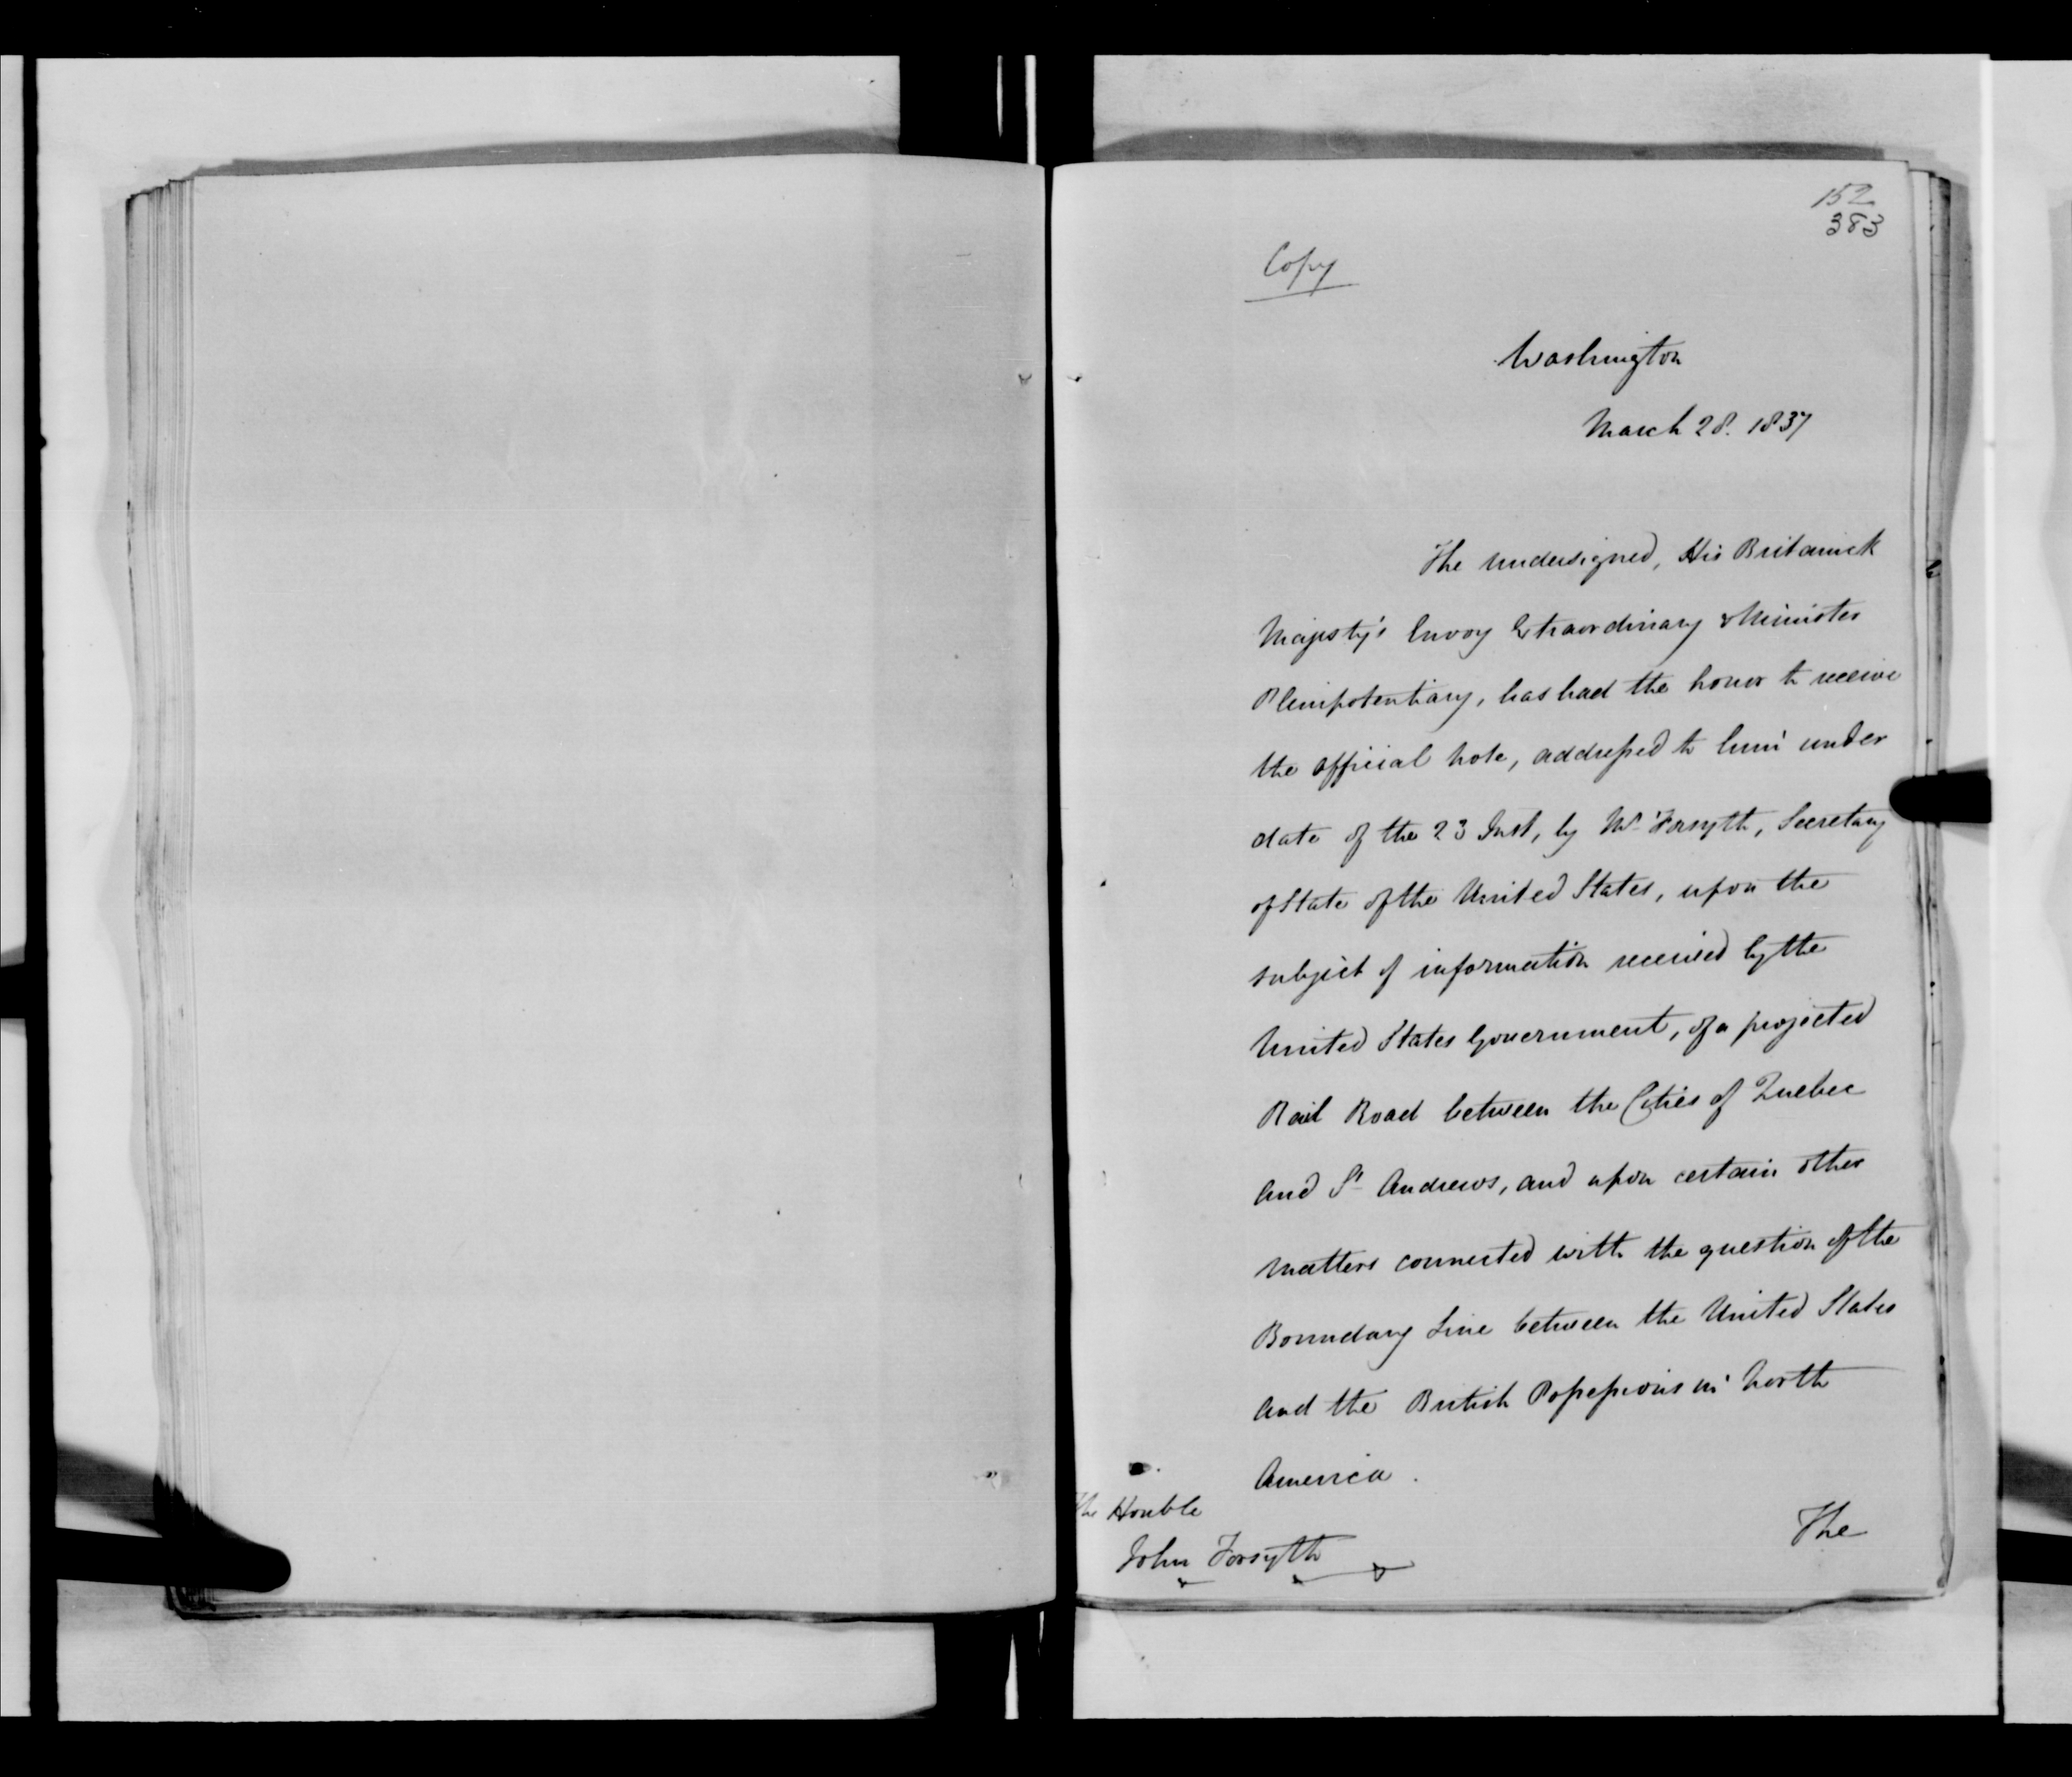 152
383
Copy
Washington
March 28. 1837
The undersigned, His Britanick
Majesty's Envoy Extraordinary & Minister
Plenipotentiary, has had the honor to receive
the official note, addressed to him under
date of the 23 Inst, by Mr Forsyth, Secretary
of State of the United States, upon the
subject of information received by the
United States Government, of a projected
Rail Road between the Cities of Quebec
and St Andrews, and upon certain other
matters connected with the question of the
Boundary Line between the United States
and the British Possessions in North
America.
The Honble
John Forsyth
The